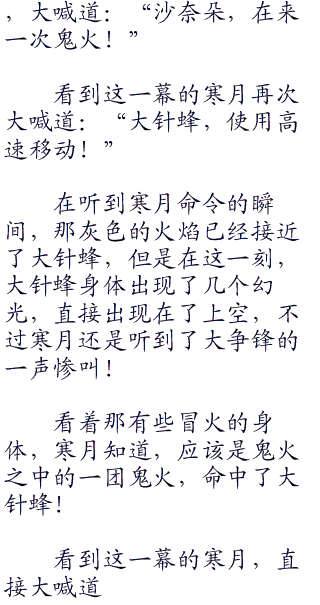 ，大喊道：“沙奈朵，在来
一次鬼火！”
看到这一幕的寒月再次
大喊道：“大针蜂，使用高
速移动！”
在听到寒月命令的瞬
间，那灰色的火焰已经接近
了大针蜂，但是在这一刻，
大针蜂身体出现了几个幻
光，直接出现在了上空，不
过寒月还是听到了大争锋的
一声惨叫！
看着那有些冒火的身
体，寒月知道，应该是鬼火
之中的一团鬼火，命中了大
针蜂！
看到这一幕的寒月，直
接大喊道